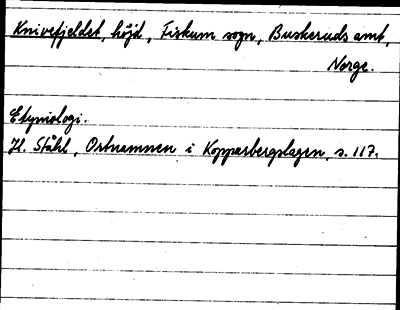 Knivefjeldet, höjd, Fiskum sogn, Buskeruds amt,
Norge.
Etymologi.
H. Ståhl, Ortnamnen i Kopparbergslagen, s. 117.